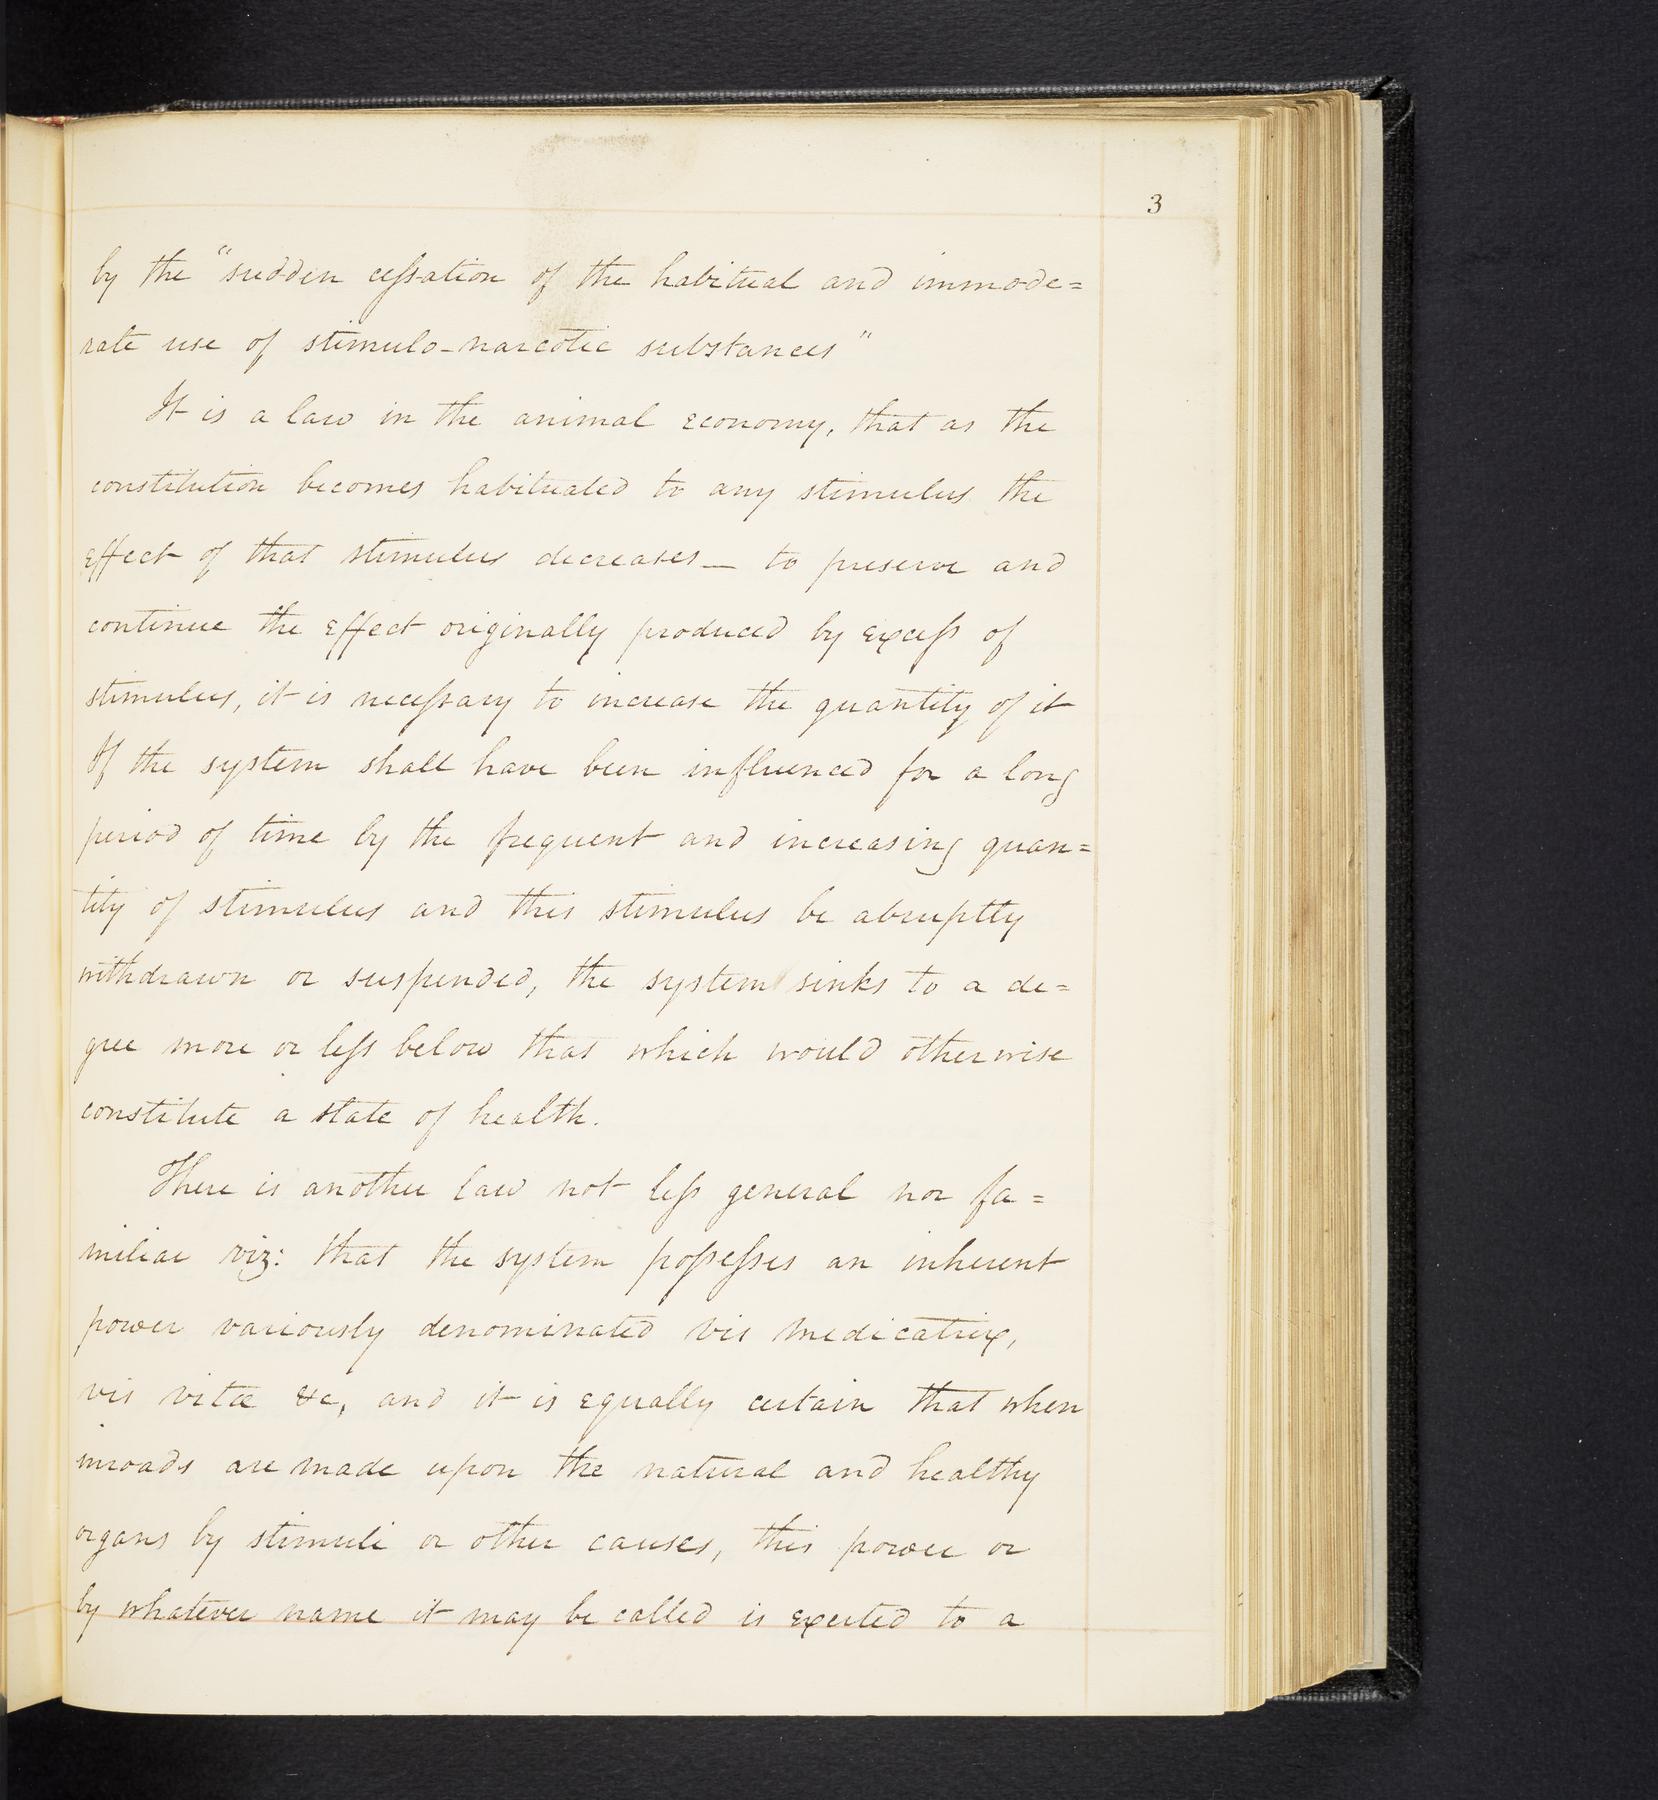 3
by the "sudden cessation of the habitual and immode=
rate use of stimulo-narcotic substances"
It is a law in the animal economy, that as the
constitution becomes habituated to any stimulus the
effect of that stimulus decreases — to preserve and
continue the effect originally produced by excess of
stimulus, it is necessary to increase the quantity of it
If the system shall have been influenced for a long
period of time by the frequent and increasing quan=
tity of stimulus and this stimulus be abruptly
withdrawn or suspended, the system sinks to a de=
gree more or less below that which would otherwise
constitute a state of health.
There is another law not less general nor fa=
miliar viz: that the system possesses an inherent
power variously denominated vis medicatrix,
vis vitæ &c, and it is equally certain that when
inroads are made upon the natural and healthy
organs by stimuli or other causes, this power or
by whatever name it may be called is exerted to a